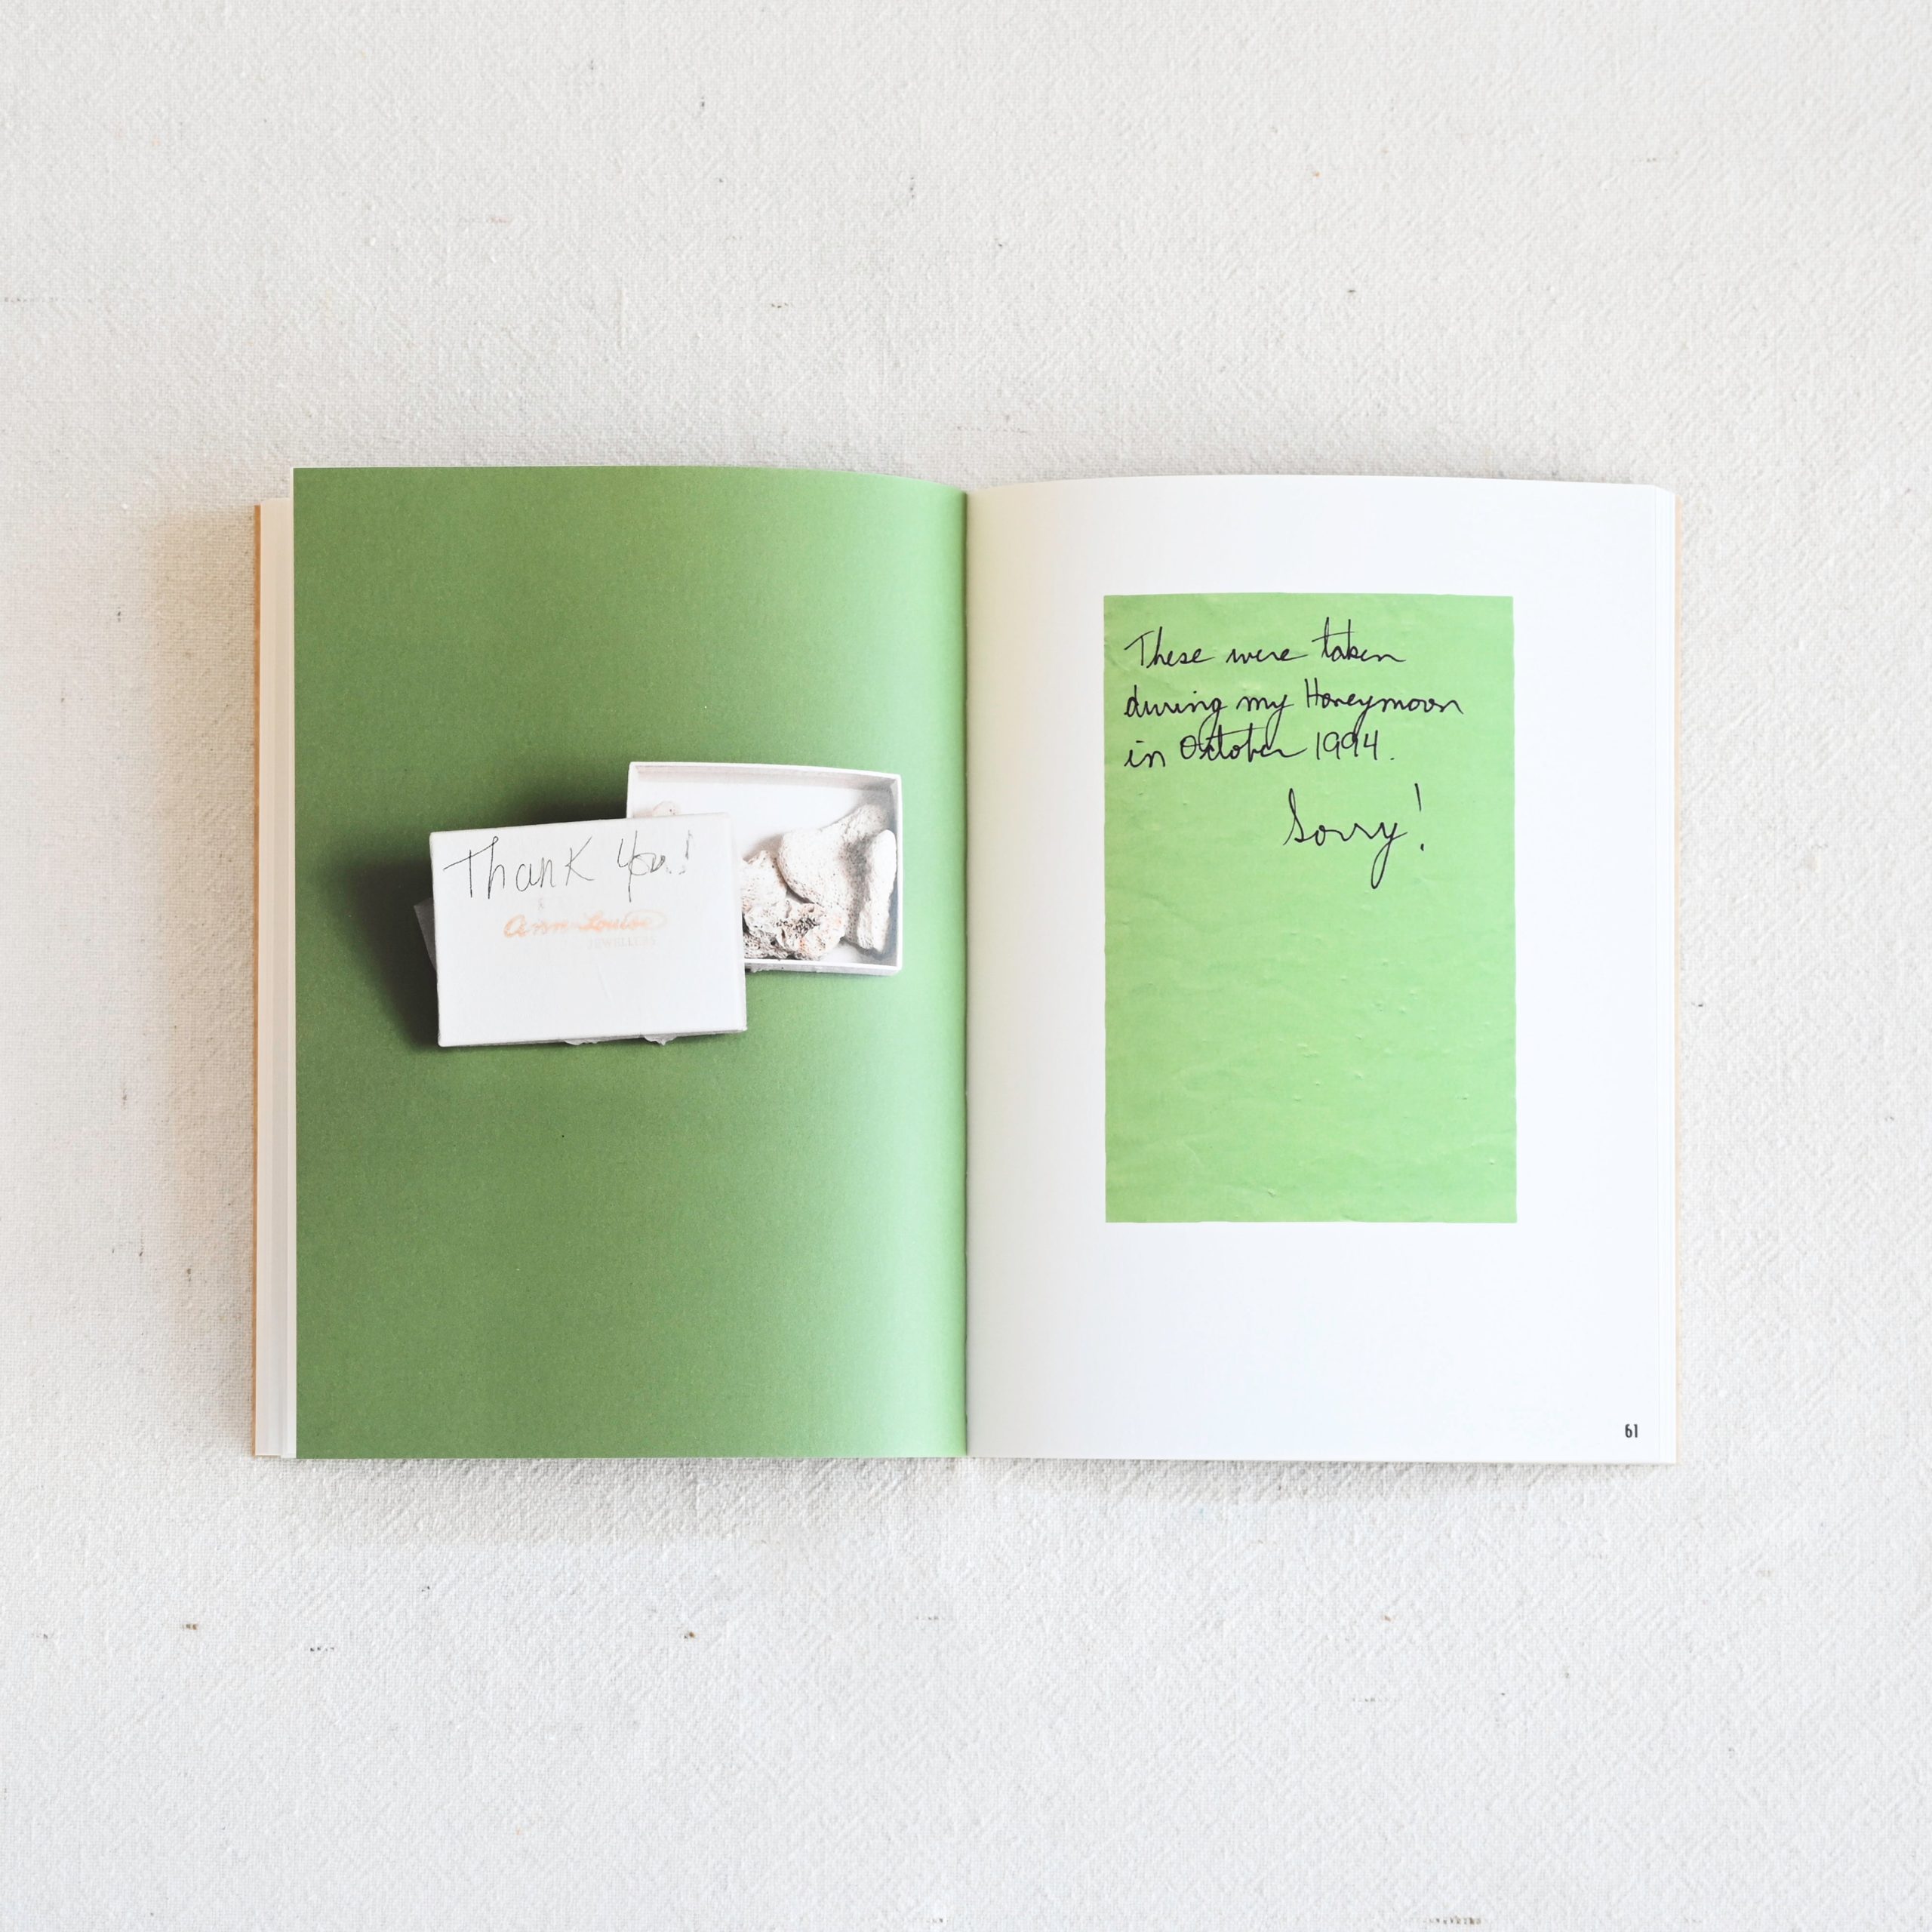 Thank You!
Ann-Louise
JEWELLERS
These were taken
during my Honeymoon
in October 1994.
Sorry!
61